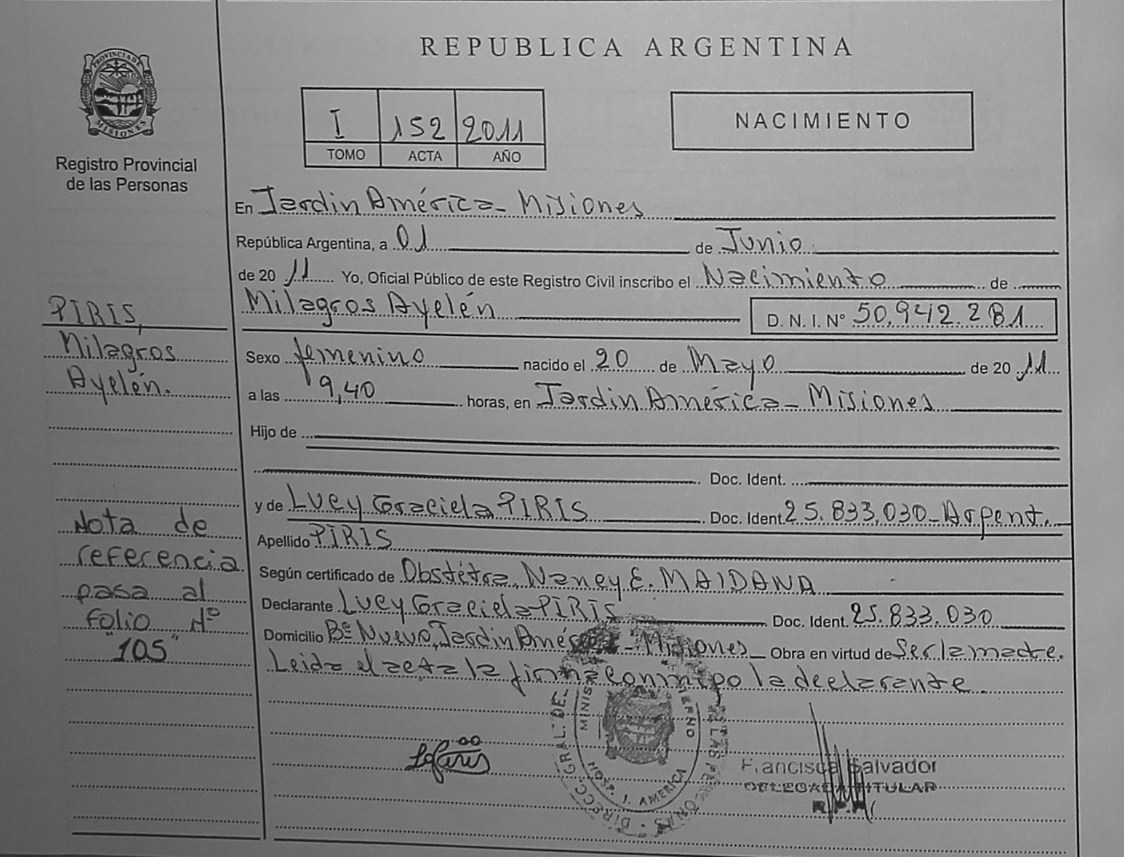 REPUBLICA ARGENTINA
PROVINCIA DE MISIONES
Registro Provincial
de las Personas
I 152 2011
TOMO ACTA AÑO
NACIMIENTO
En Jardin América - Misiones
República Argentina, a 01 de Junio
de 20 11 Yo, Oficial Público de este Registro Civil inscribo el Nacimiento de
Milagros Ayelén D. N. I. Nº 50.942.281
Sexo femenino nacido el 20 de Mayo de 20 11
a las 9,40 horas, en Jardin América - Misiones
Hijo de
Doc. Ident.
y de Lucy Graciela PIRIS Doc. Ident. 25.833.030 - Argent.
Apellido PIRIS
Según certificado de Obstétra, Nancy E. MAIDANA
Declarante Lucy Graciela PIRIS Doc. Ident. 25.833.030
Domicilio Bº Nuevo, Jardin América - Misiones Obra en virtud de Ser la madre.
Leida el acta la firma conmigo la declarante.
PIRIS,
Milagros
Ayelén.
Nota de
referencia
pasa al
folio Nº
"105"
DIRECC. GRAL. DE LAS PERSONAS
HOSP. J. AMERICA
Francisca Salvador
DELEGADA TITULAR